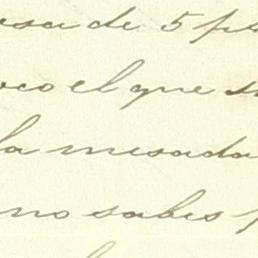 esa de 5 ps
oco el que s
la mesada
no sabes p